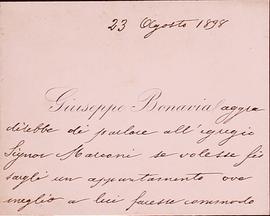 23 Agosto 1898
Giuseppe Bonavia (aggra
direbbe di parlare all'egregio
Signor Marconi se volesse fis
sargli un appuntamento ove
meglio a lui facesse commodo